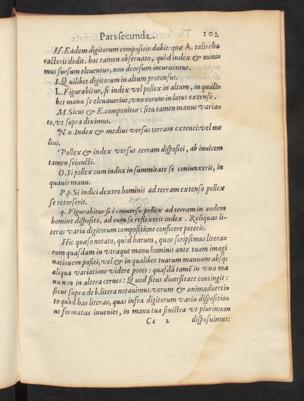 Pars secunda. 102
H. Eadem digitorum compositio dabit: quæ A. talis cha
racteris dedit. hoc tamen obseruato, quòd index & mini
mus sursum eleuentur, non deorsum incuruentur.
I. Quilibet digitorum in altum protensus.
L. Figurabitur, si index vel pollex in altum, in qua
bet manu se eleuauerint, vno eorum in latus extenso.
M. Sicut & E. componitur: situ tamen manus variato
to, vt supra diximus.
N n Index & medius versus terram extenti: vel me
lius.
Pollex & index versus terram dispositi, ab inuicem
tamen seiuncti.
O. Si pollex cum indice in summitate se coniunxerit, in
quauis manu.
P. p. Si indici dextro hominis ad terram extenso pollex
se retorserit.
q. Figurabitur si è conuerso pollex ad terram in eodem
homine disposito, ad eum se reflexerit index. Reliquas li-
teras varia digitorum compositione conficere poteris.
Hic quæso notato, quòd harum, quas scripsimus literas
rum quasdam in vtraque manu hominis ante tuam imagi
nationem positi, vel & in qualibet tuarum manuum absq;
aliqua variatione videre potes: quasdã tamẽ in vna ma
nu non in altera cernes: Quod situs diuersitate contingit:
sicut supra de b. litera notauimus. verum & animaduerti
to quòd has literas, quas infra digitorum varia dispositio
ne formatas inuenis, in manu tua sinistra vt plurimum
Cc 2 disposuimus: